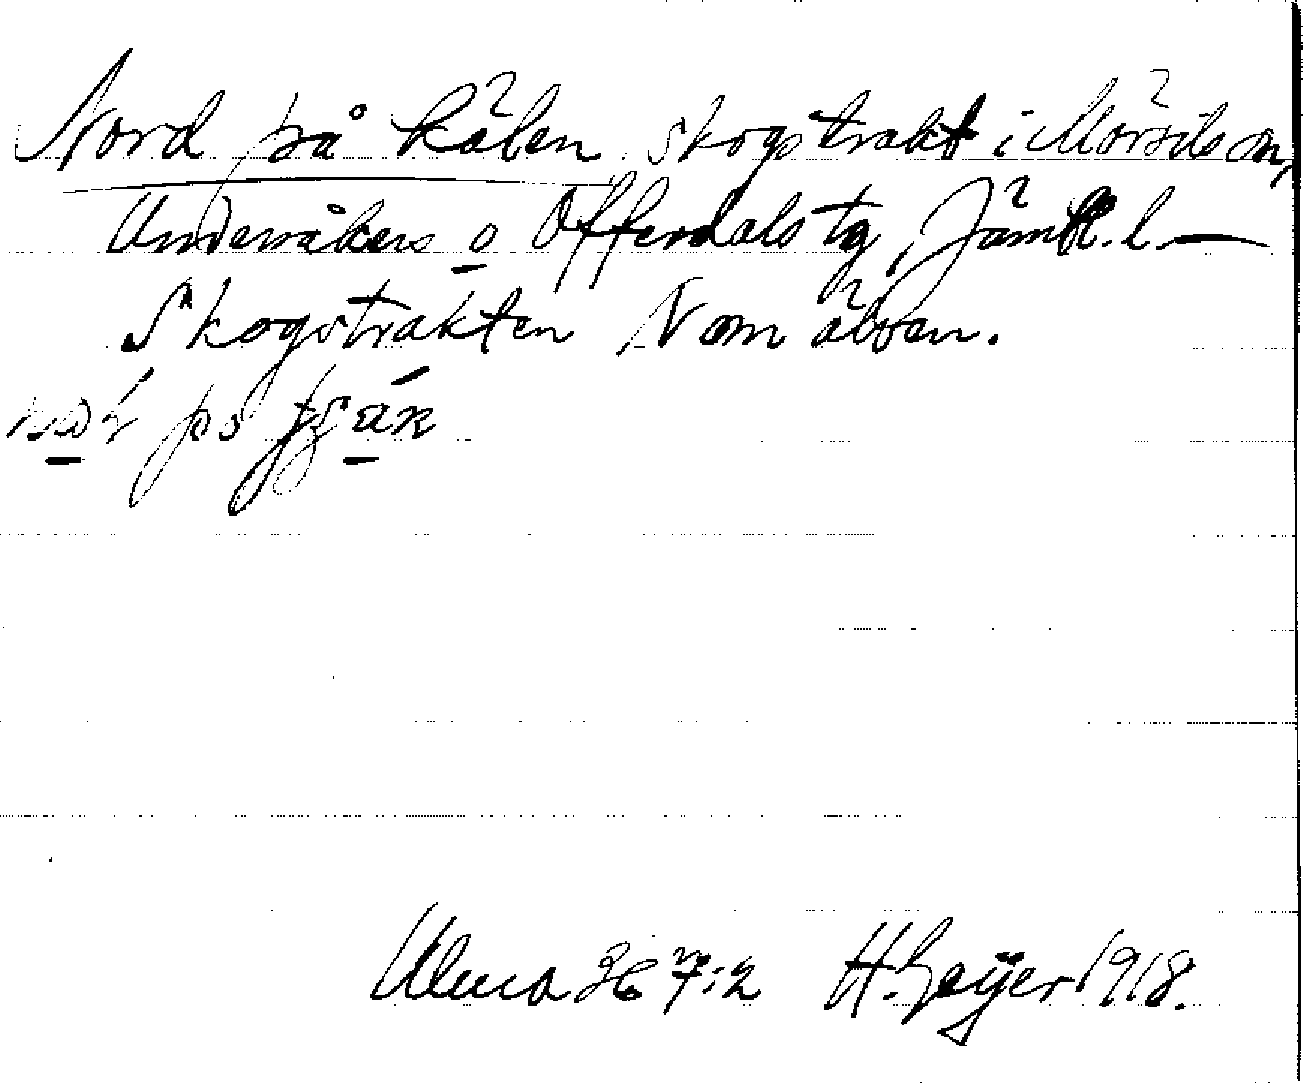 Nord på kölen skogstrakt i Mörsils sn,
Undersåkers o Offerdals tg, Jämtl. l. —
Skogstrakten N om älven.
på
Ulma 367:2 H. Geijer 1918.